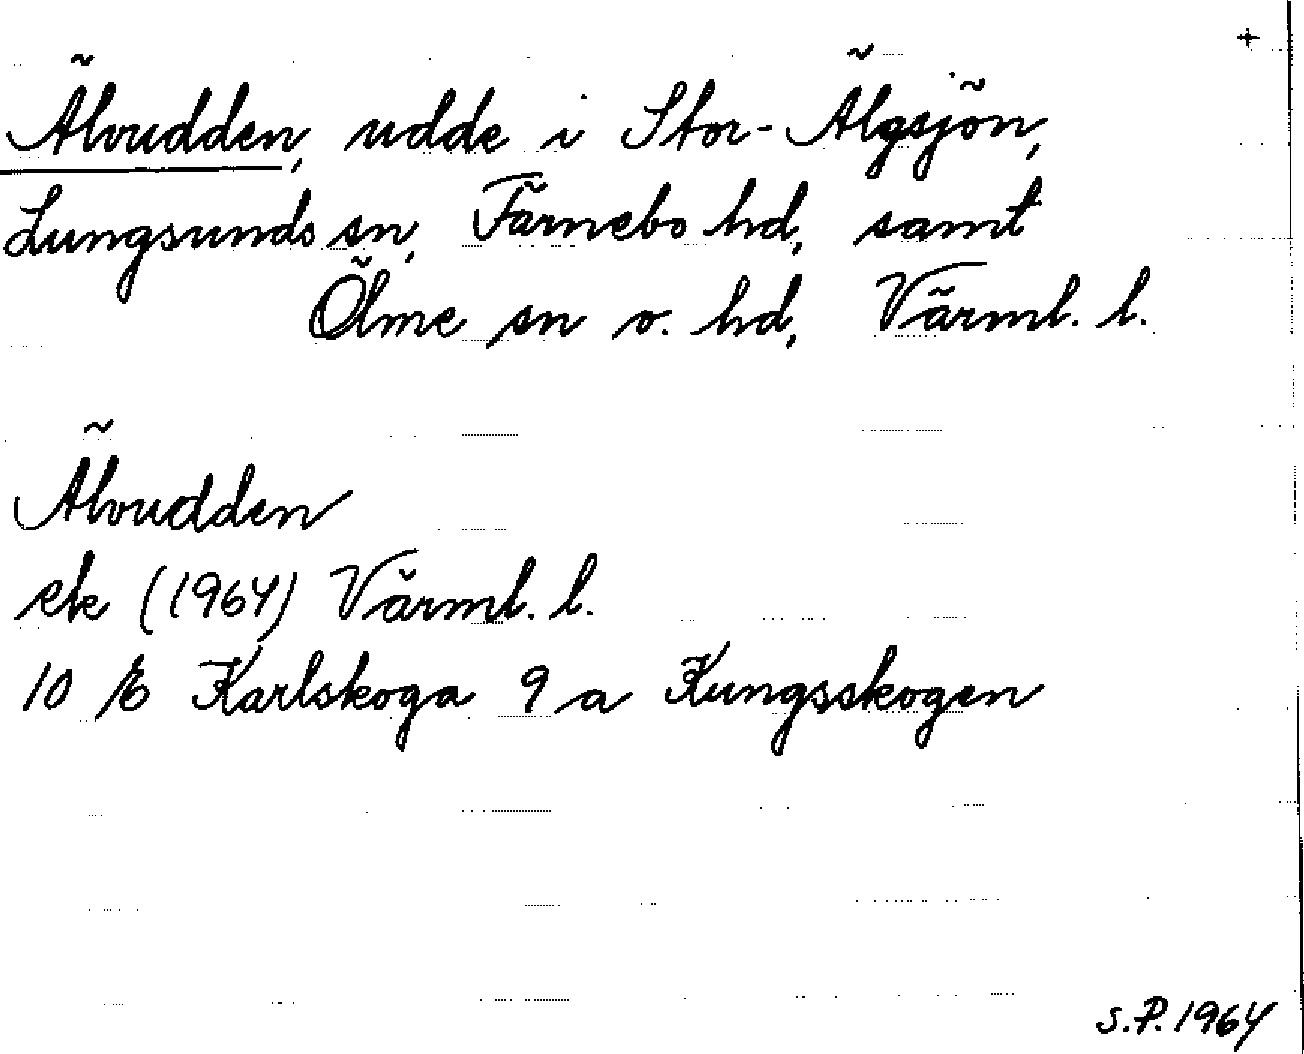 +
Älvudden, udde i Stor-Älgsjön,
Lungsunds sn, Färnebo hd, samt
Ölme sn o. hd, Värml. l.
Älvudden
ek (1964) Värml. l.
10 E Karlskoga 9 a Kungsskogen
S.P. 1964